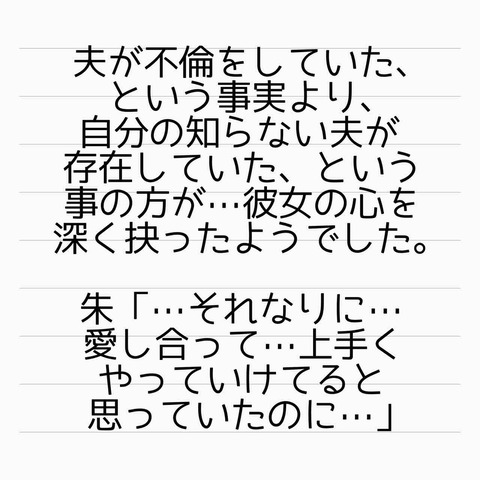 夫が不倫をしていた、
という事実より、
自分の知らない夫が
存在していた、という
事の方が…彼女の心を
深く抉ったようでした。
朱「…それなりに…
愛し合って…上手く
やっていけてると
思っていたのに…」